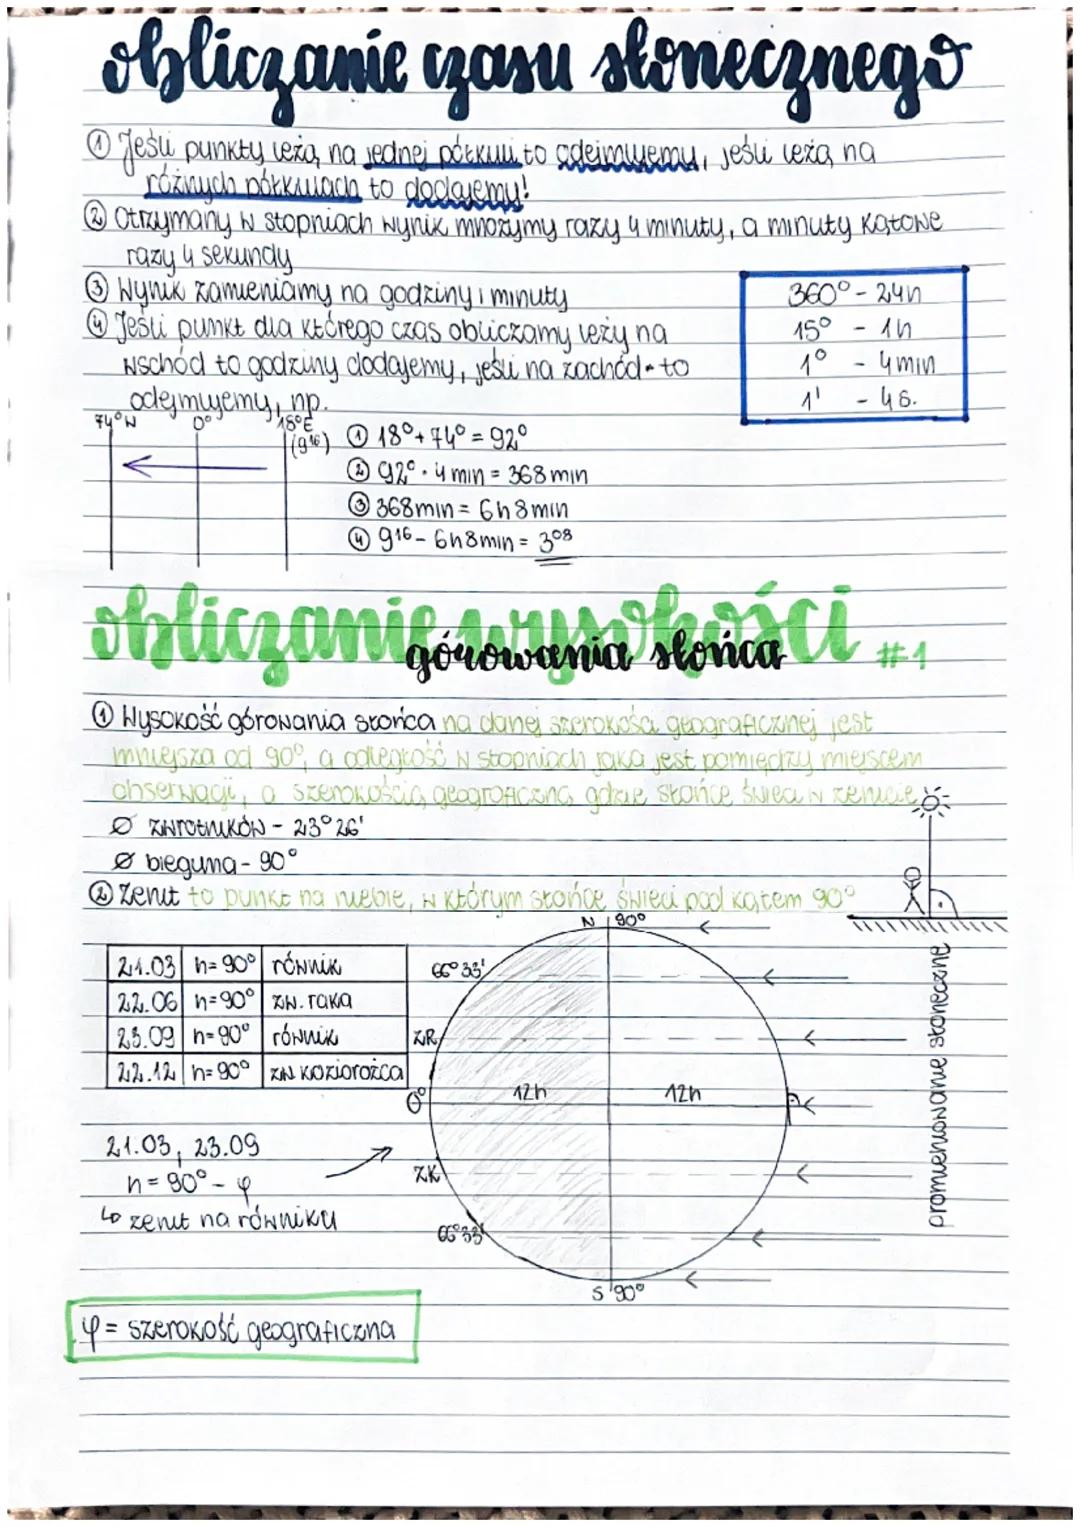 obliczanie czasu słonecznego
① Jeśli punkty leżą na jednej półkuli to odejmujemy, jeśli leżą na
różnych półkulach to dodajemy!
② Otrzymany w stopniach wynik mnożymy razy 4 minuty, a minuty kątowe
razy 4 sekundy
③ Wynik zamieniamy na godziny i minuty
④ Jeśli punkt dla którego czas obliczamy leży na
wschód to godziny dodajemy, jeśli na zachód - to
odejmujemy, np.
360° - 24h
15° - 1h
1° - 4min
1' - 4s.
74°W 0° 18°E
(9¹⁶)
① 18° + 74° = 92°
② 92° · 4 min = 368 min
③ 368min = 6h 8min
④ 9¹⁶ - 6h8min = 3⁰⁸
obliczanie wysokości
górowania słońca #1
① Wysokość górowania słońca na danej szerokości geograficznej jest
mniejsza od 90°, a odległość w stopniach jaka jest pomiędzy miejscem
obserwacji, a szerokością geograficzną, gdzie słońce świeci w zenicie
Ø zwrotników - 23°26'
Ø bieguna - 90°
② Zenit to punkt na niebie, w którym słońce świeci pod kątem 90°
21.03 h=90° równik
22.06 h=90° zw. raka
23.09 h=90° równik
22.12 h=90° zw koziorożca
N 90°
66°33'
ZR
12h 12h
0°
ZK
66°33'
S 90°
promieniowanie słoneczne
21.03, 23.09
h = 90° - φ
↳ zenit na równiku
φ = szerokość geograficzna